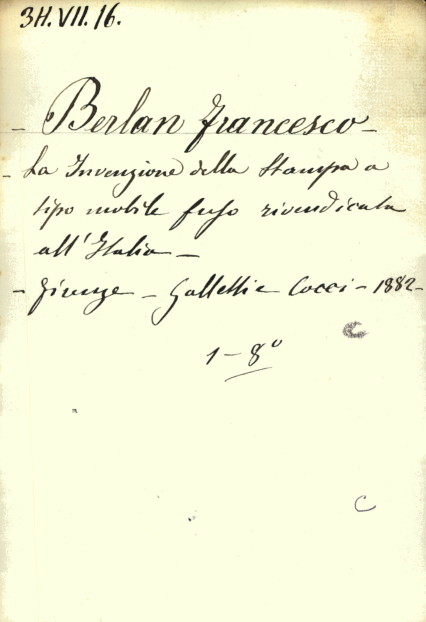 3H.VII.16.
- Berlan Francesco -
- La Invenzione della Stampa a
tipo mobile fuso rivendicata
all'Italia -
- Firenze - Galletti e Cocci - 1882 -
C
1 - 8º
C